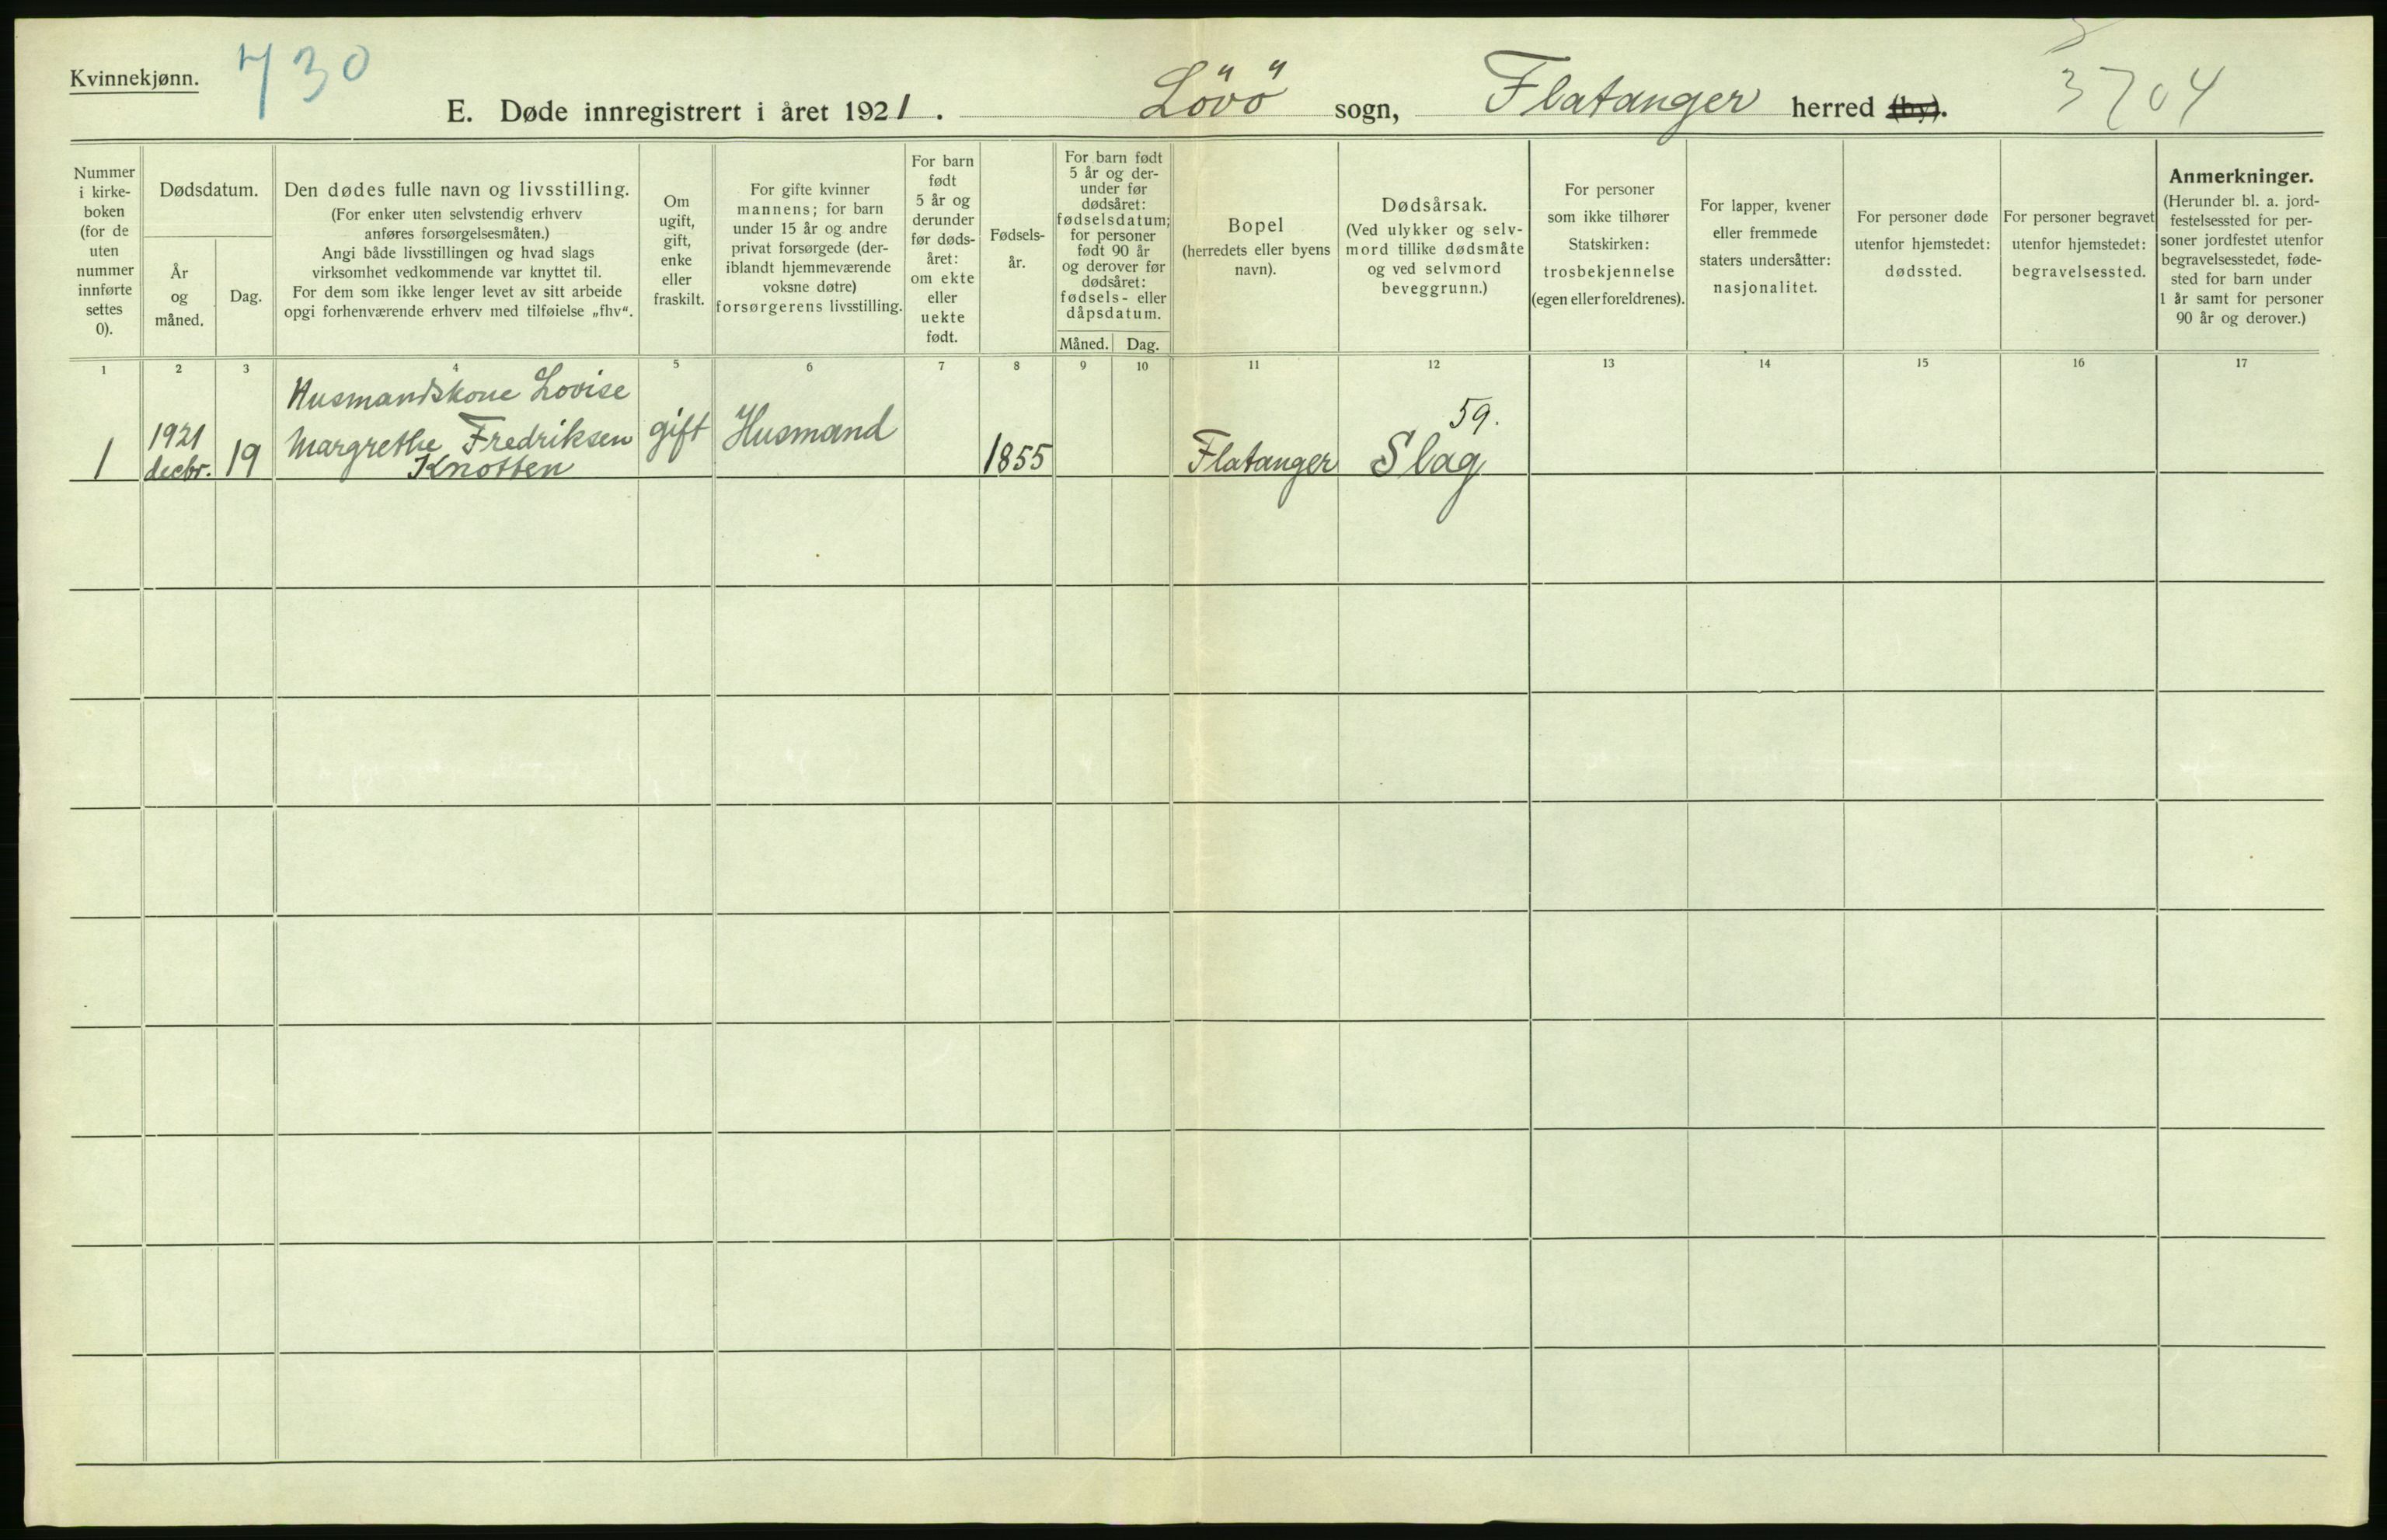 Kvinnekjønn.
730
E. Døde innregistrert i året 1921. Lövö sogn, Flatanger herred (by).
3704
Nummer
i kirke-
boken
(for de
uten
nummer
innførte
settes
0).
Dødsdatum.
År
og
måned.
Dag.
Den dødes fulle navn og livsstilling.
(For enker uten selvstendig erhverv
anføres forsørgelsesmåten.)
Angi både livsstillingen og hvad slags
virksomhet vedkommende var knyttet til.
For dem som ikke lenger levet av sitt arbeide
opgi forhenværende erhverv med tilføielse „fhv“.
Om
ugift,
gift,
enke
eller
fraskilt.
For gifte kvinner
mannens; for barn
under 15 år og andre
privat forsørgede (der-
iblandt hjemmeværende
voksne døtre)
forsørgerens livsstilling.
For barn
født
5 år og
derunder
før døds-
året:
om ekte
eller
uekte
født.
Fødsels-
år.
For barn født
5 år og der-
under før
dødsåret:
fødselsdatum;
for personer
født 90 år
og derover før
dødsåret:
fødsels- eller
dåpsdatum.
Måned. Dag.
Bopel
(herredets eller byens
navn).
Dødsårsak.
(Ved ulykker og selv-
mord tillike dødsmåte
og ved selvmord
beveggrunn.)
For personer
som ikke tilhører
Statskirken:
trosbekjennelse
(egen eller foreldrenes).
For lapper, kvener
eller fremmede
staters undersåtter:
nasjonalitet.
For personer døde
utenfor hjemstedet:
dødssted.
For personer begravet
utenfor hjemstedet:
begravelsessted.
Anmerkninger.
(Herunder bl. a. jord-
festelsessted for per-
soner jordfestet utenfor
begravelsesstedet, føde-
sted for barn under
1 år samt for personer
90 år og derover.)
1 2 3 4 5 6 7 8 9 10 11 12 13 14 15 16 17
1
1921
decbr.
19
Husmandskone Lovise
Margrethe Fredriksen
Knotten
gift
Husmand
1855
Flatanger
59.
Slag